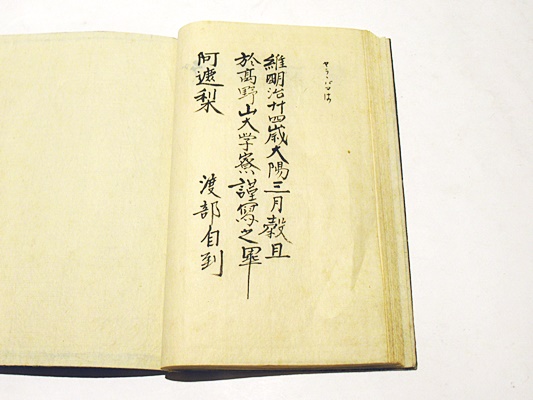 維明治廿四歳大陽三月穀旦
於高野山大学寮謹寫之畢
阿遮梨 渡部自到